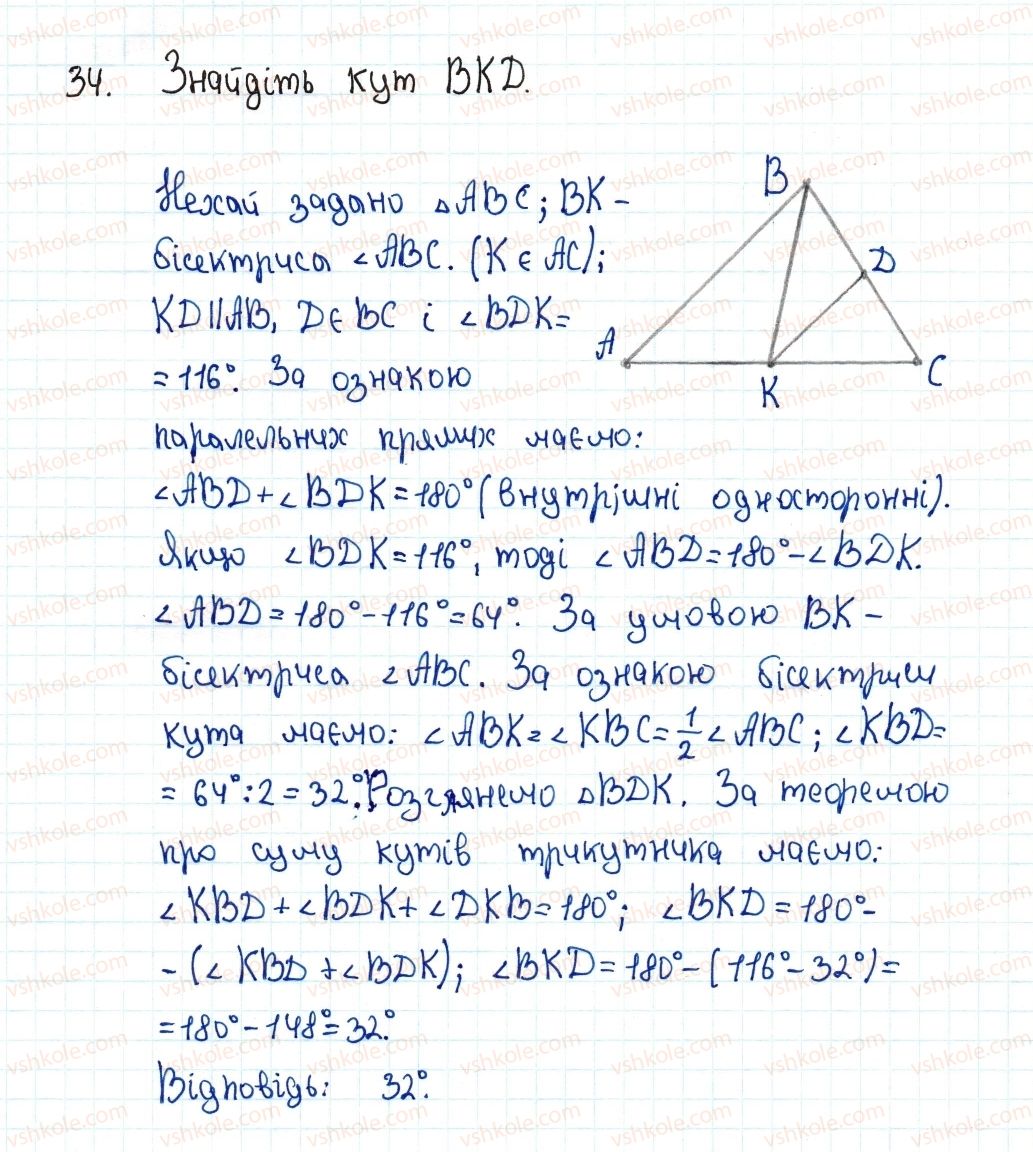 34. Знайдіть кут BKD.
Нехай задано △ABC; BK –
бісектриса ∠ABC. (K ∈ AC);
KD||AB, D∈ BC і ∠BDK=
= 116°. За ознакою
паралельних прямих маємо:
∠ABD+∠BDK=180° (внутрішні односторонні).
Якщо ∠BDK=116°, тоді ∠ABD=180°-∠BDK.
∠ABD=180°-116°=64°. За умовою BK –
бісектриса ∠ABC. За ознакою бісектриси
кута маємо: ∠ABK=∠KBC=1/2∠ABC; ∠KBD=
= 64°:2=32°. Розглянемо △BDK. За теоремою
про суму кутів трикутника маємо:
∠KBD+∠BDK+∠DKB=180°; ∠BKD=180°-
-(∠KBD+∠BDK); ∠BKD=180°-(116°-32°)=
=180°-148°=32°.
Відповідь: 32°.
B
D
A
K
C
vshkole.com